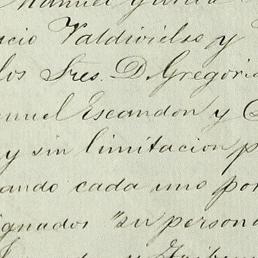 Manuel Garcia
acio Valdivielso y
los Sres. D. Gregorio
anuel Escandon y
y sin limitacion p
ando cada uno por
ignados "su persona